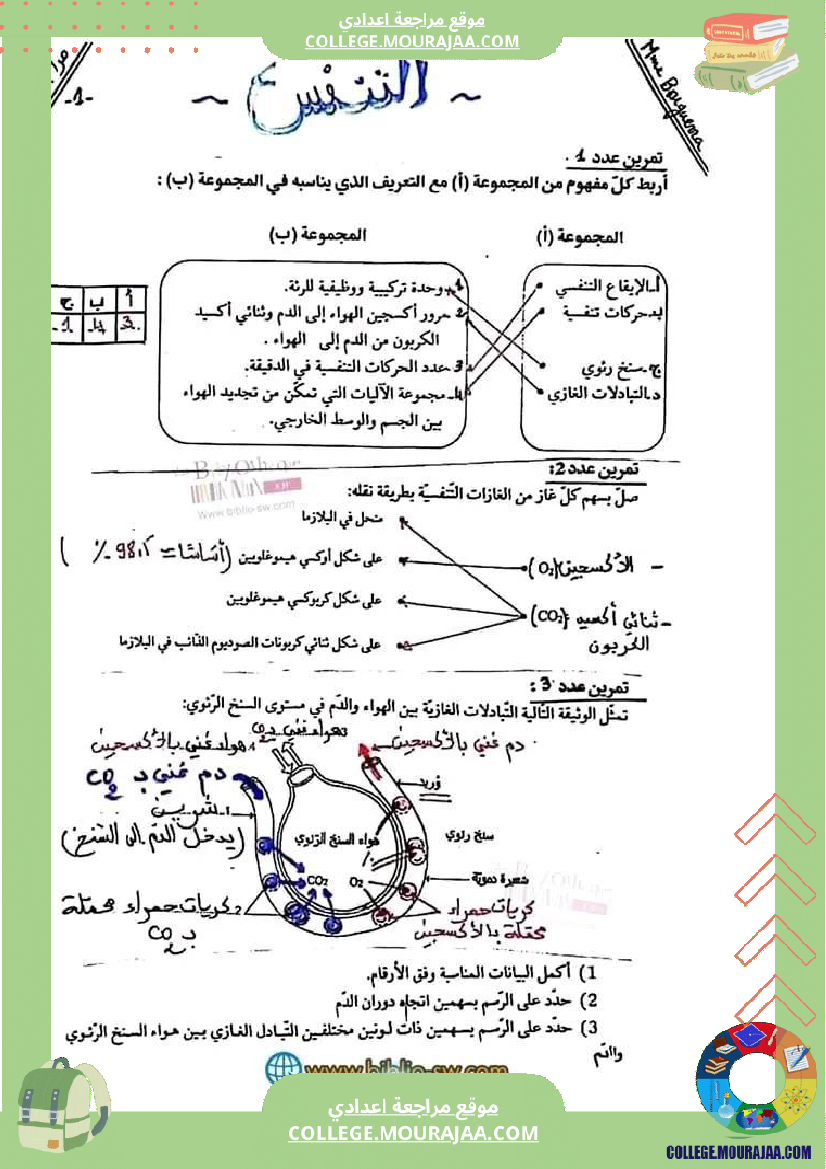 موقع مراجعة اعدادي
COLLEGE.MOURAJAA.COM
Mme Barguema
-1-
~ التنفس ~
تمرين عدد 1 .
أربط كلّ مفهوم من المجموعة (أ) مع التعريف الذي يناسبه في المجموعة (ب) :
المجموعة (أ)
المجموعة (ب)
أ-الإيقاع التنفسي
ب-حركات تنفسية
ج-سنخ رئوي
د-التبادلات الغازي
1-وحدة تركيبية ووظيفية للرئة.
2-مرور أكسجين الهواء إلى الدم وثنائي أكسيد
الكربون من الدم إلى الهواء .
3-عدد الحركات التنفسية في الدقيقة.
4-مجموعة الآليات التي تمكّن من تجديد الهواء
بين الجسم والوسط الخارجي.
أ ب ج
3 4 1
تمرين عدد2:
صلّ بسهم كلّ غاز من الغازات التّنفسيّة بطريقة نقله:
منحل في البلازما
- الأكسجين (O2)
على شكل أوكسي هيموغلوبين (أساسًا = 98.5 %)
على شكل كربوكسي هيموغلوبين
- ثنائي أكسيد (CO2)
الكربون
على شكل ثنائي كربونات الصوديوم الذّائب في البلازما
تمرين عدد 3 :
تمثّل الوثيقة التّالية التّبادلات الغازيّة بين الهواء والدّم في مستوى السنخ الرّئوي:
هواء غني بـ CO2
هواء غني بالأكسجين
دم غني بالأكسجين
دم غني بـ CO2
وريد
1-شريين
(يدخل الدم إلى السنخ)
هواء السنخ الرئوي
سنخ رئوي
CO2
O2
شعيرة دموية
2-كريات حمراء محملة
بـ CO2
كريات حمراء
محملة بالأكسجين
1) أكمل البيانات المناسبة وفق الأرقام.
2) حدّد على الرّسم بسهمين اتجاه دوران الدّم
3) حدّد على الرّسم بسهمين ذات لونين مختلفين التّبادل الغازي بين هواء السنخ الرّئوي
والدّم
www.biblio-sw.com
موقع مراجعة اعدادي
COLLEGE.MOURAJAA.COM
COLLEGE.MOURAJAA.COM